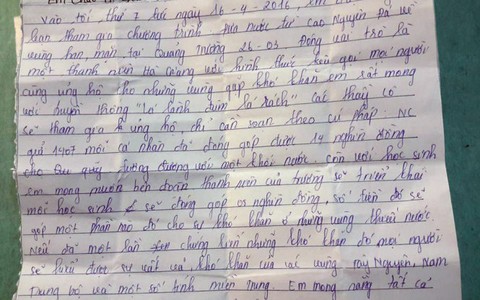 Vào tối thứ 7 tức ngày 16-4-2016, em
tham gia chương trình đưa nước từ cao Nguyên Đá về
vùng hạn, mặn tại Quảng trường 26-03 Đóng vai trò là
một thanh niên Hà Giang với hình thức kêu gọi mọi người
cùng ủng hộ cho những vùng gặp khó khăn em rất mong
với truyền thống "lá lành đùm lá rách" các thầy cô
sẽ tham gia ủng hộ, chỉ cần soạn theo cú pháp: NC
gửi 1407 mỗi cá nhân đã đóng góp được 14 nghìn đồng
cho tương đương với một khối nước. Còn với học sinh
em mong muốn bên đoàn thanh niên của trường sẽ triển khai
mỗi học sinh sẽ đóng góp 05 nghìn đồng, số tiền đó sẽ
góp một phần nào đó cho sự khó khăn ở những vùng thiếu nước.
Nếu đã một lần chứng kiến những khó khăn đó mọi người
sẽ hiểu được sự vất vả khó khăn của các vùng Tây Nguyên, Nam
Trung bộ và một số tỉnh miền Trung. Em mong rằng tất cả